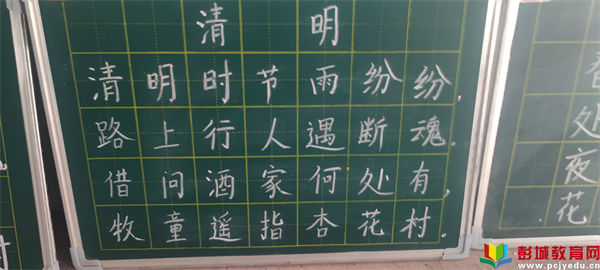 清明
清明时节雨纷纷，
路上行人遇断魂。
借问酒家何处有，
牧童遥指杏花村.
处
夜
花
彭城教育网
www.pcjyedu.cn